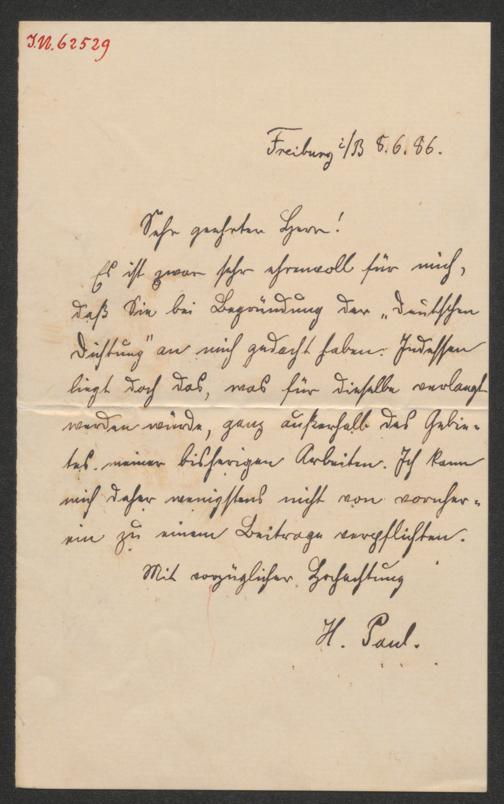 J.N. 62529
Freiburg i/B 8.6.86.
Sehr geehrter Herr!
Es ist zwar sehr ehrenvoll für mich,
daß Sie bei Begründung der „Deutschen
Dichtung" an mich gedacht haben. Indessen
liegt doch das, was für dieselbe verlangt
werden würde, ganz außerhalb des Gebie-
tes meiner bisherigen Arbeiten. Ich kann
mich daher wenigstens nicht von vornher-
ein zu einem Beitrage verpflichten.
Mit vorzüglicher Hochachtung
H. Paul.